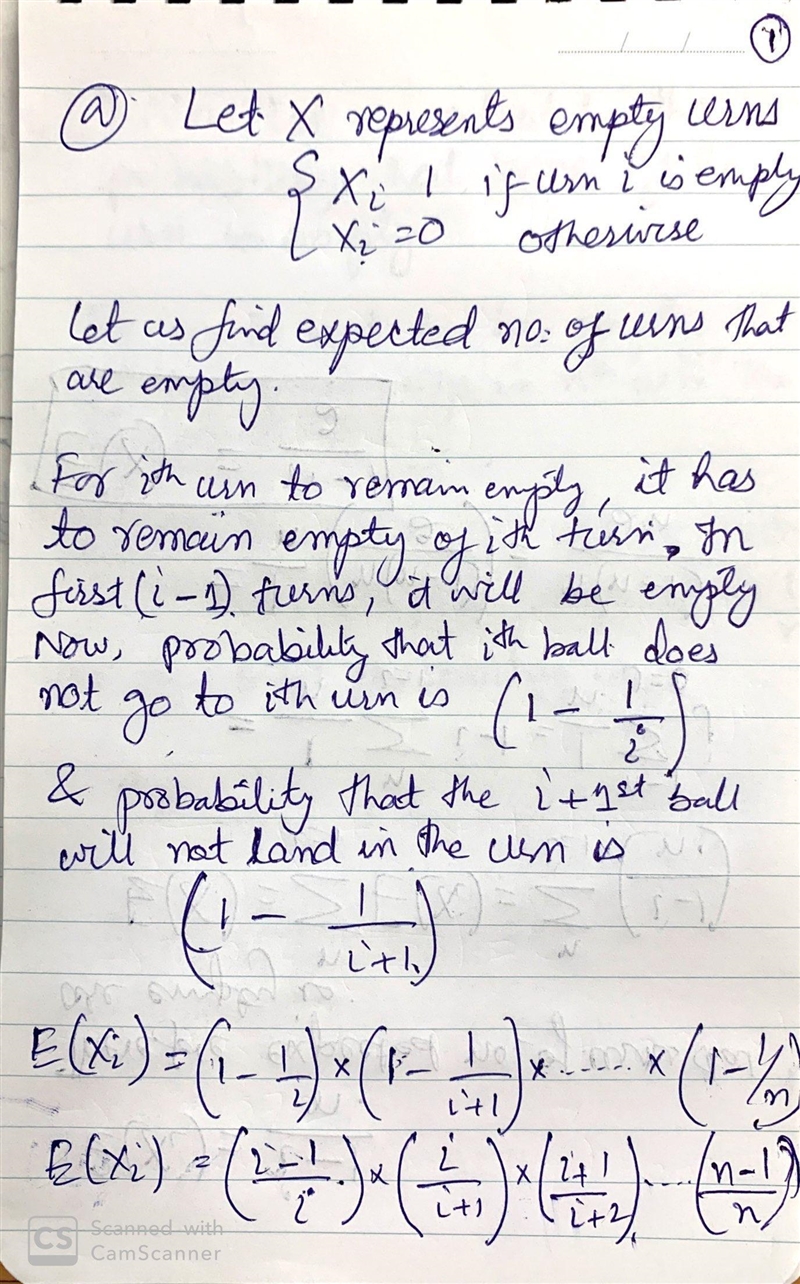 1
(a) Let X represents empty urns
{ Xi 1 if urn i is empty
Xi = 0 otherwise
Let us find expected no. of urns that
are empty.
For ith urn to remain empty, it has
to remain empty of ith turn. In
first (i-1) turns, it will be empty
Now, probability that ith ball does
not go to ith urn is (1 - 1/i)
& probability that the i+1st ball
will not land in the urn is
(1 - 1/(i+1))
E(Xi) = (1 - 1/i) × (1 - 1/(i+1)) × ...... × (1 - 1/n)
E(Xi) = ((i-1)/i) × (i/(i+1)) × ((i+1)/(i+2)) .... ((n-1)/n)
CS Scanned with
CamScanner